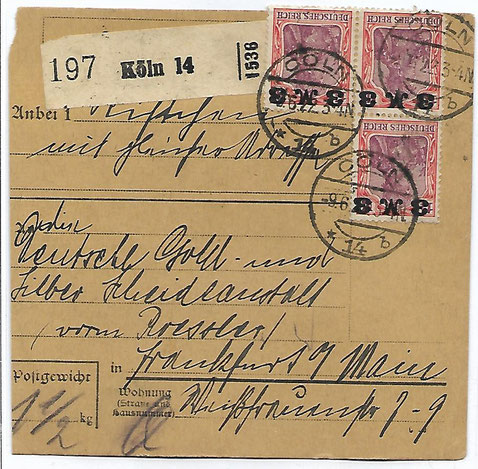 DEUTSCHES REICH
DEUTSCHES REICH
DEUTSCHES REICH
3 M 3
3 M 3
3 M 3
CÖLN
CÖLN
-9.6.22.3-4N.
-9.6
* 14 b
* 14 b
197 Köln 14 1536
Anbei 1 Kistchen
mit gleicher Adresse
An die
Deutsche Gold- und
Silber Scheideanstalt
vorm Roessler
in Frankfurt a/Main
Postgewicht
1 1/2 kg
Wohnung
(Straße und
Hausnummer)
Weißfrauenstr 7-9